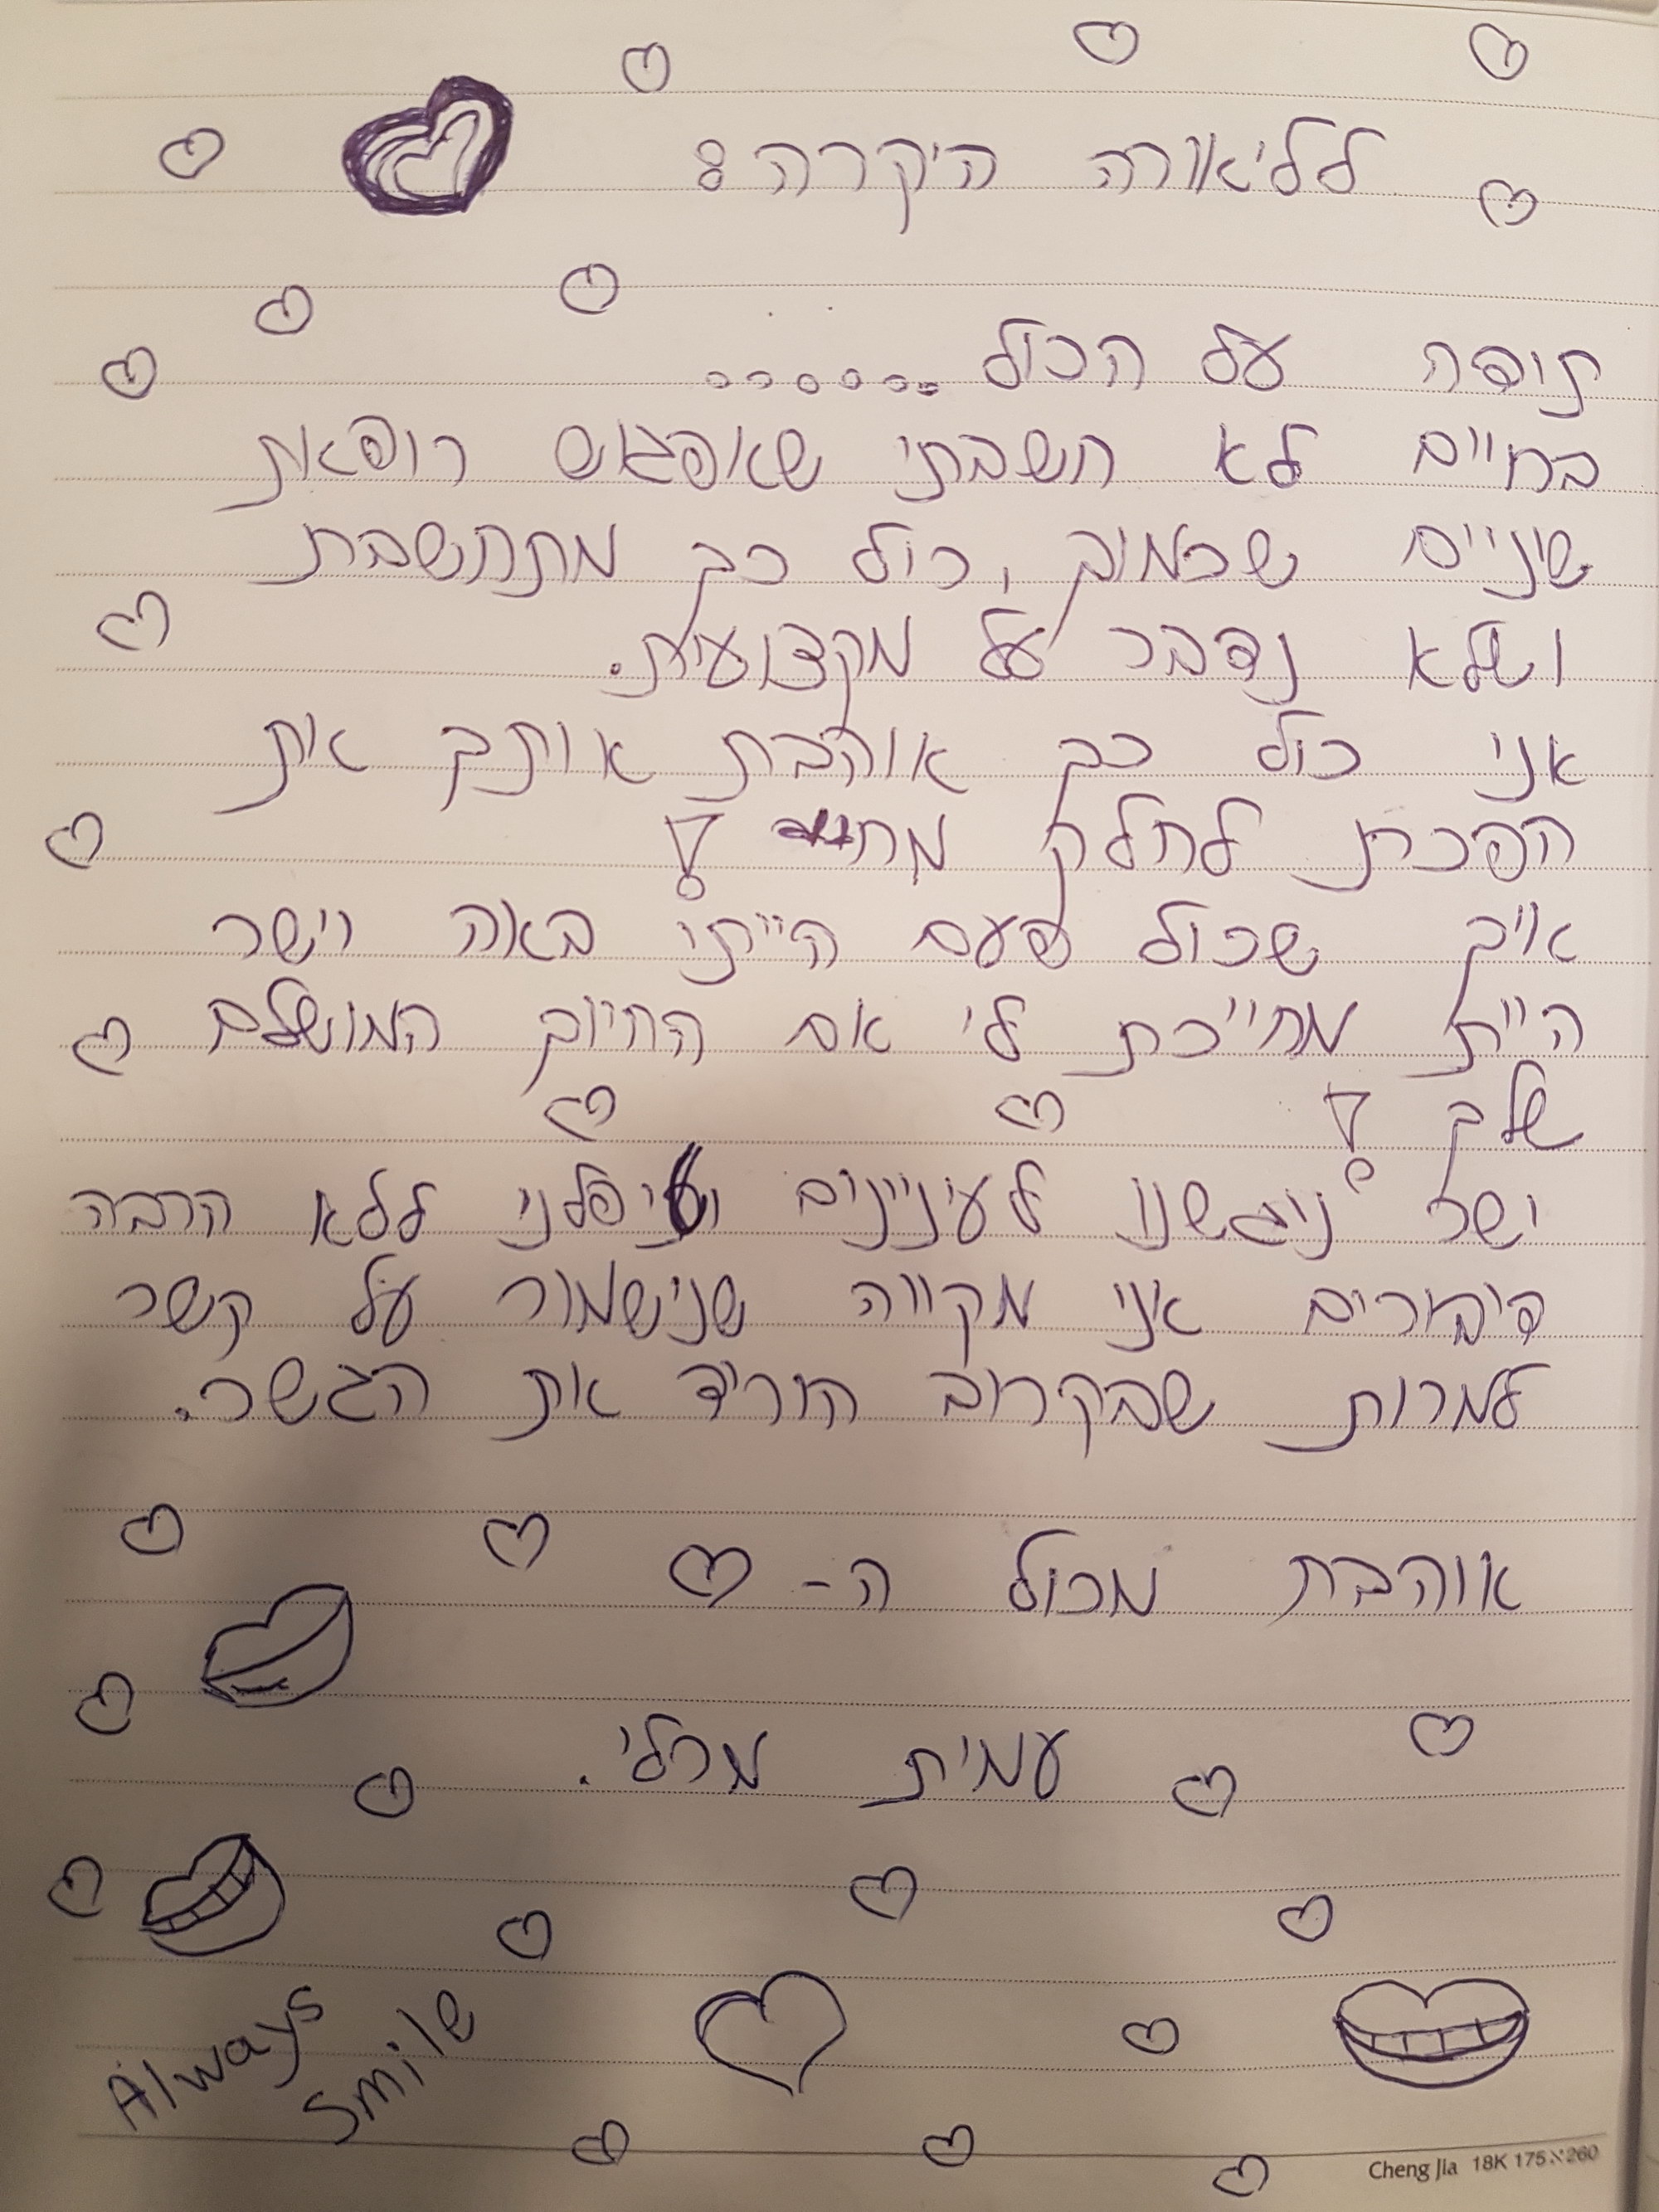 לליאורה היקרה:
תודה על הכול ......
בחיים לא חשבתי שאפגוש רופאת
שיניים שכמוך, כול כך מתחשבת
ושלא נדבר על מקצועית.
אני כול כך אוהבת אותך את
הפכת לחלק !
איך שכול פעם הייתי באה וישר
היית מחייכת לי אם החיוך המושלם
שלך !
ישר ניגשנו לעיניינים ללא הרבה
דיבורים אני מקווה שנישמור על קשר
למרות שבקרוב הוריד את הגשר.
אוהבת מכול ה-
עמית מרלי.
Always
Smile
Cheng Jia 18K 175×260